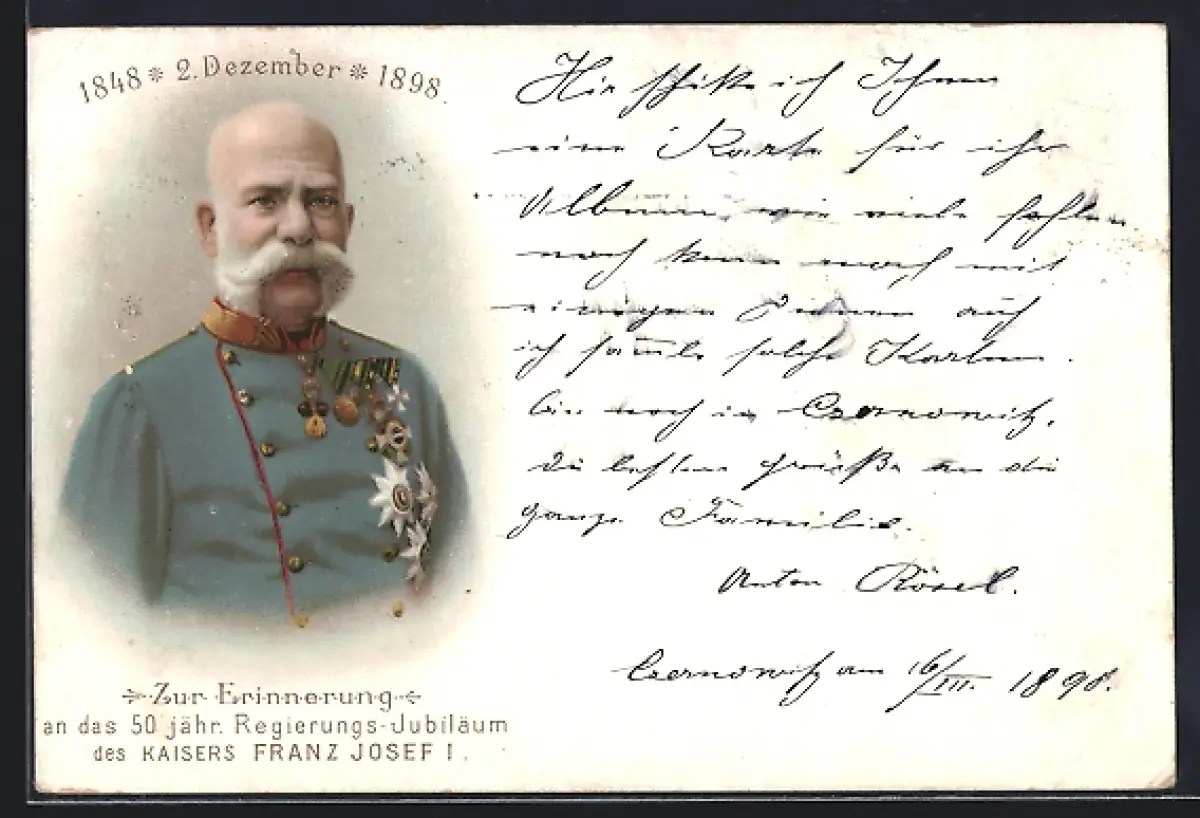 1848 * 2. Dezember * 1898.
Zur Erinnerung
an das 50 jähr. Regierungs-Jubiläum
des KAISERS FRANZ JOSEF I.
Hir schike ich Ihnen
eine Karte für ihr
Album, wie viele fehlen
noch kann noch mit
einigen dienen auch
ich samle solche Karten.
bin noch in Czernowitz,
die besten grüße an die
ganze Familie.
Anton Rösel.
Czernowitz am 16/III. 1898.